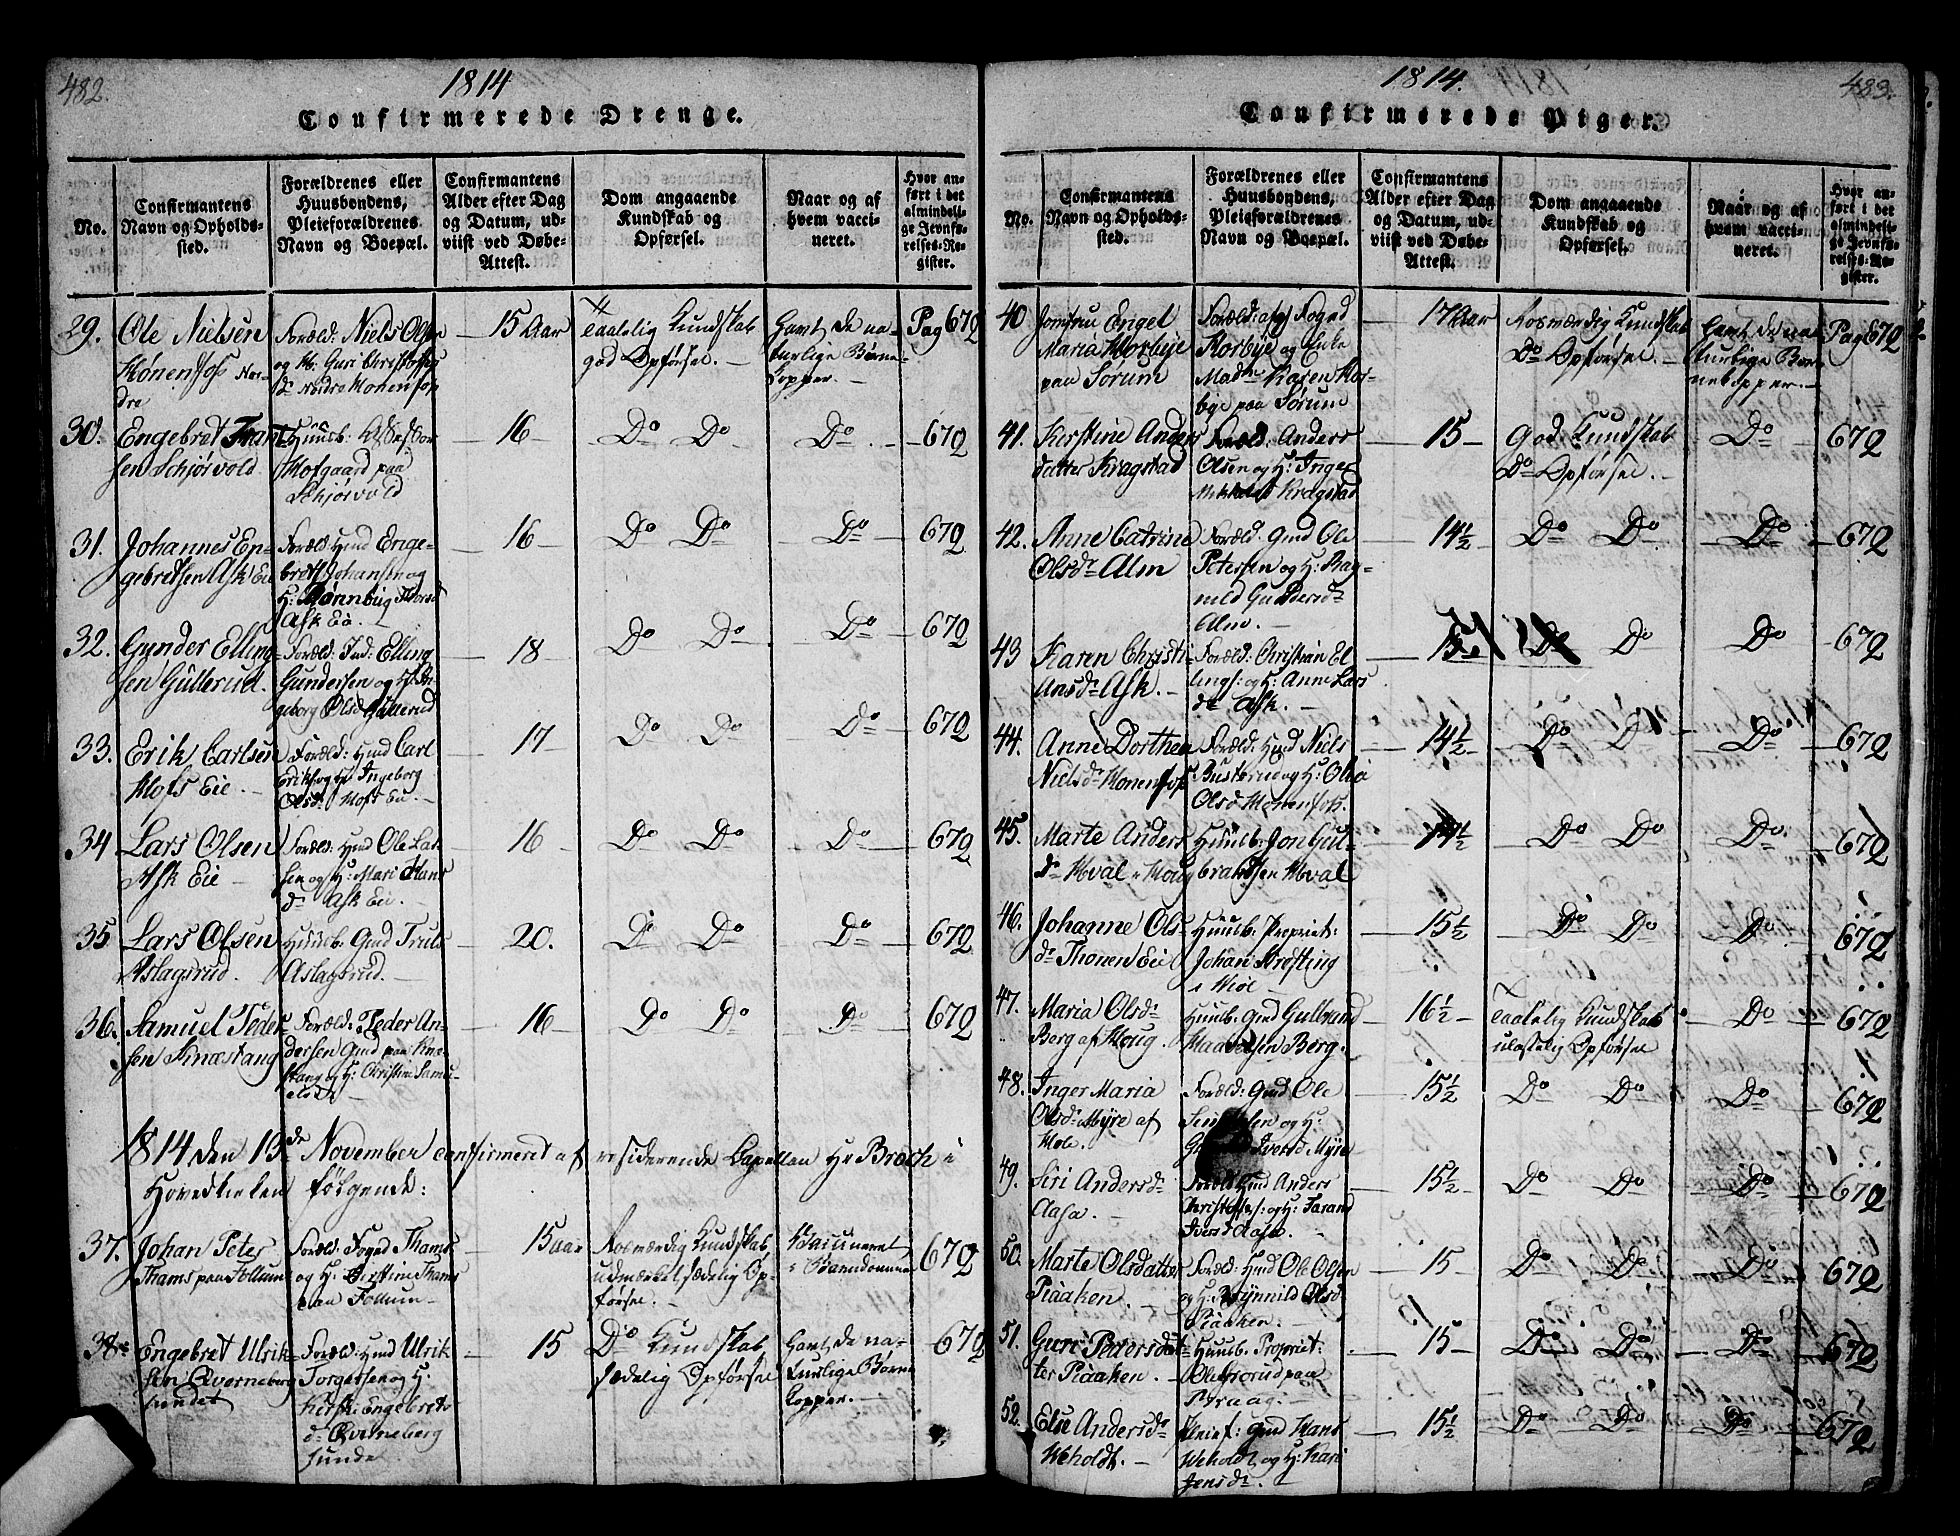 482.
1814
Confirmerede Drenge.
No.
Confirmantens
Navn og Opholds-
sted.
Forældrenes eller
Huusbondens,
Pleieforældrenes
Navn og Boepæl.
Confirmantens
Alder efter Dag
og Datum, ud-
viist ved Døbe-
Attest.
Dom angaaende
Kundskab og
Opførsel.
Naar og af
hvem vacci-
neret.
Hvor an-
ført i det
almindeli-
ge Jevnfø-
relses-Re-
gister.
29.
Ole Nielsen
Hønenfos Nor-
dre
Foræld: Niels Olsen
og H: Guri Christofs
dr Nordre Hønenfos
15 Aar
taalelig Kundskab
god Opførsel.
Havt de na-
turlige Børne-
kopper.
Pag 672
30.
Engebret
sen Schjørvold
Huusb:
Hofgaard paa
Schjørvold
16
Do Do
Do
672
31.
Johannes En-
gebretsen Ask Eie
Foræld: Hmd Enge-
bret Johansen og
H:
Ask Eie.
16
Do Do
Do
672
32.
Gunder Elling-
sen Gullerud.
Foræld: Ind: Elling
Gundersen og H: In-
geborg Olsdr Gullerud
18
Do Do
Do
672
33.
Erik Carlsen
Hofs Eie.
Foræld: Hmd Carl
Eriks. og H: Ingeborg
Olsdr Hofs Eie.
17
Do Do
Do
672
34
Lars Olsen
Ask Eie
Foræld: Hmd Ole Lar-
sen og H: Mari Hans
dr Ask Eie.
16
Do Do
Do
672
35
Lars Olsen
Aslagsrud.
Huusb: Gmd Truls
Aslagsrud.
20.
Do Do
Do
672
36.
Samuel Peder-
sen Knæstang
Foræld: Peder An-
dersen Gmd paa Knæ-
stang og H: Christine Samu-
elsdr
16
Do Do
Do
672
1814 den 13de November confirmeret af residerende Capellan Hr Broch i
Hovedkirken følgende:
37.
Johan Peter
Thams paa Follum
Foræld: Foged Thams
og H: Christine Thams
paa Follum
15 Aar
Rosværdig Kundskab,
udmærket sædelig Op-
førsel.
Vaccineret
672
38
Engebret Ulrik-
sen Qverneberg
sundet
Foræld: Hmd Ulrik
Torgersen og H:
Kirsti Engebrets
dr Qverneberg
sundet
15
Do Kundskab,
sædelig Opførsel
Havt de na-
turlige Børne
kopper.
672
483.
1814.
Confirmerede Piger.
No.
Confirmantens
Navn og Opholds-
sted.
Forældrenes eller
Huusbondens,
Pleieforældrenes
Navn og Boepæl.
Confirmantens
Alder efter Dag
og Datum, ud-
viist ved Døbe-
Attest.
Dom angaaende
Kundskab og
Opførsel.
Naar og af
hvem vacci-
neret.
Hvor an-
ført i det
almindeli-
ge Jevnfø-
relses-Re-
gister.
40
Jomfru Engel
Maria Korbye
paa Sørum
Foræld: afg Foged
Korbye og Enke
Madm Karen Kor-
bye paa Sørum
17 Aar
Rosværdig Kundskab
Do Opførsel.
Havt de nat-
turlige Bør-
nekopper.
Pag 672
41.
Kirstine Anders
datter Kragstad
Foræld: Anders
Olsen og H: Inger
Kragstad
15
God Kundskab
Do Opførsel.
Do
672
42.
Anne Catrine
Olsdr Alm
Foræld: Gmd Ole
Petersen og H: Rag-
nild Gundersdr
Alm.
14½
Do Do
Do
672
43
Karen Christi-
ansdr Ask.
Foræld: Christian El-
lings: og H: Anne Lars
dr Ask.
15
Do Do
Do
672
44.
Anne Dorthea
Nielsdr Hønenfos
Foræld: Hmd Niels
Busterud og H: Olea
Olsdr Hønenfos.
14½
Do Do
Do
672
45.
Marte Anders
dr Hval i Houg
Huusb: Jon Gul-
brandsen Hval
14½
Do Do
Do
672
46.
Johanne Ols-
dr Thonen Eie
Huusb: Propriet:
Johan Drøfting
i Viol
15½
Do Do
Do
672
47.
Maria Olsdr
Berg af Houg.
Huusb: Gmd Gulbrand
Haavelsen Berg.
16½
taalelig Kundskab
ulastelig Opførsel
Do
672
48.
Inger Maria
Olsdr Myre af
Hole.
Foræld: Gmd Ole
og H:
Iversdr Myre
15½
Do Do
Do
672
49.
Siri Andersdr
Aasa.
Foræld: Hmd Anders
Christoffers: og H: Tarand
Iversdr Aasa.
15½
Do Do
Do
672
50.
Marte Olsdatter
Piaaken.
Foræld: Hmd Ole Olsen
og H: Brynnild Olsdr
Piaaken.
15
Do Do
Do
672
51.
Guri Pedersdat-
ter Piaaken.
Huusb: Propriet:
Ole Frorud paa
Braag.
15
Do Do
Do
672
52.
Else Andersdr
Weholdt.
Pleief: Gmd Hans
Weholdt og H: Kari
Jensdr.
15½
Do Do
Do
672